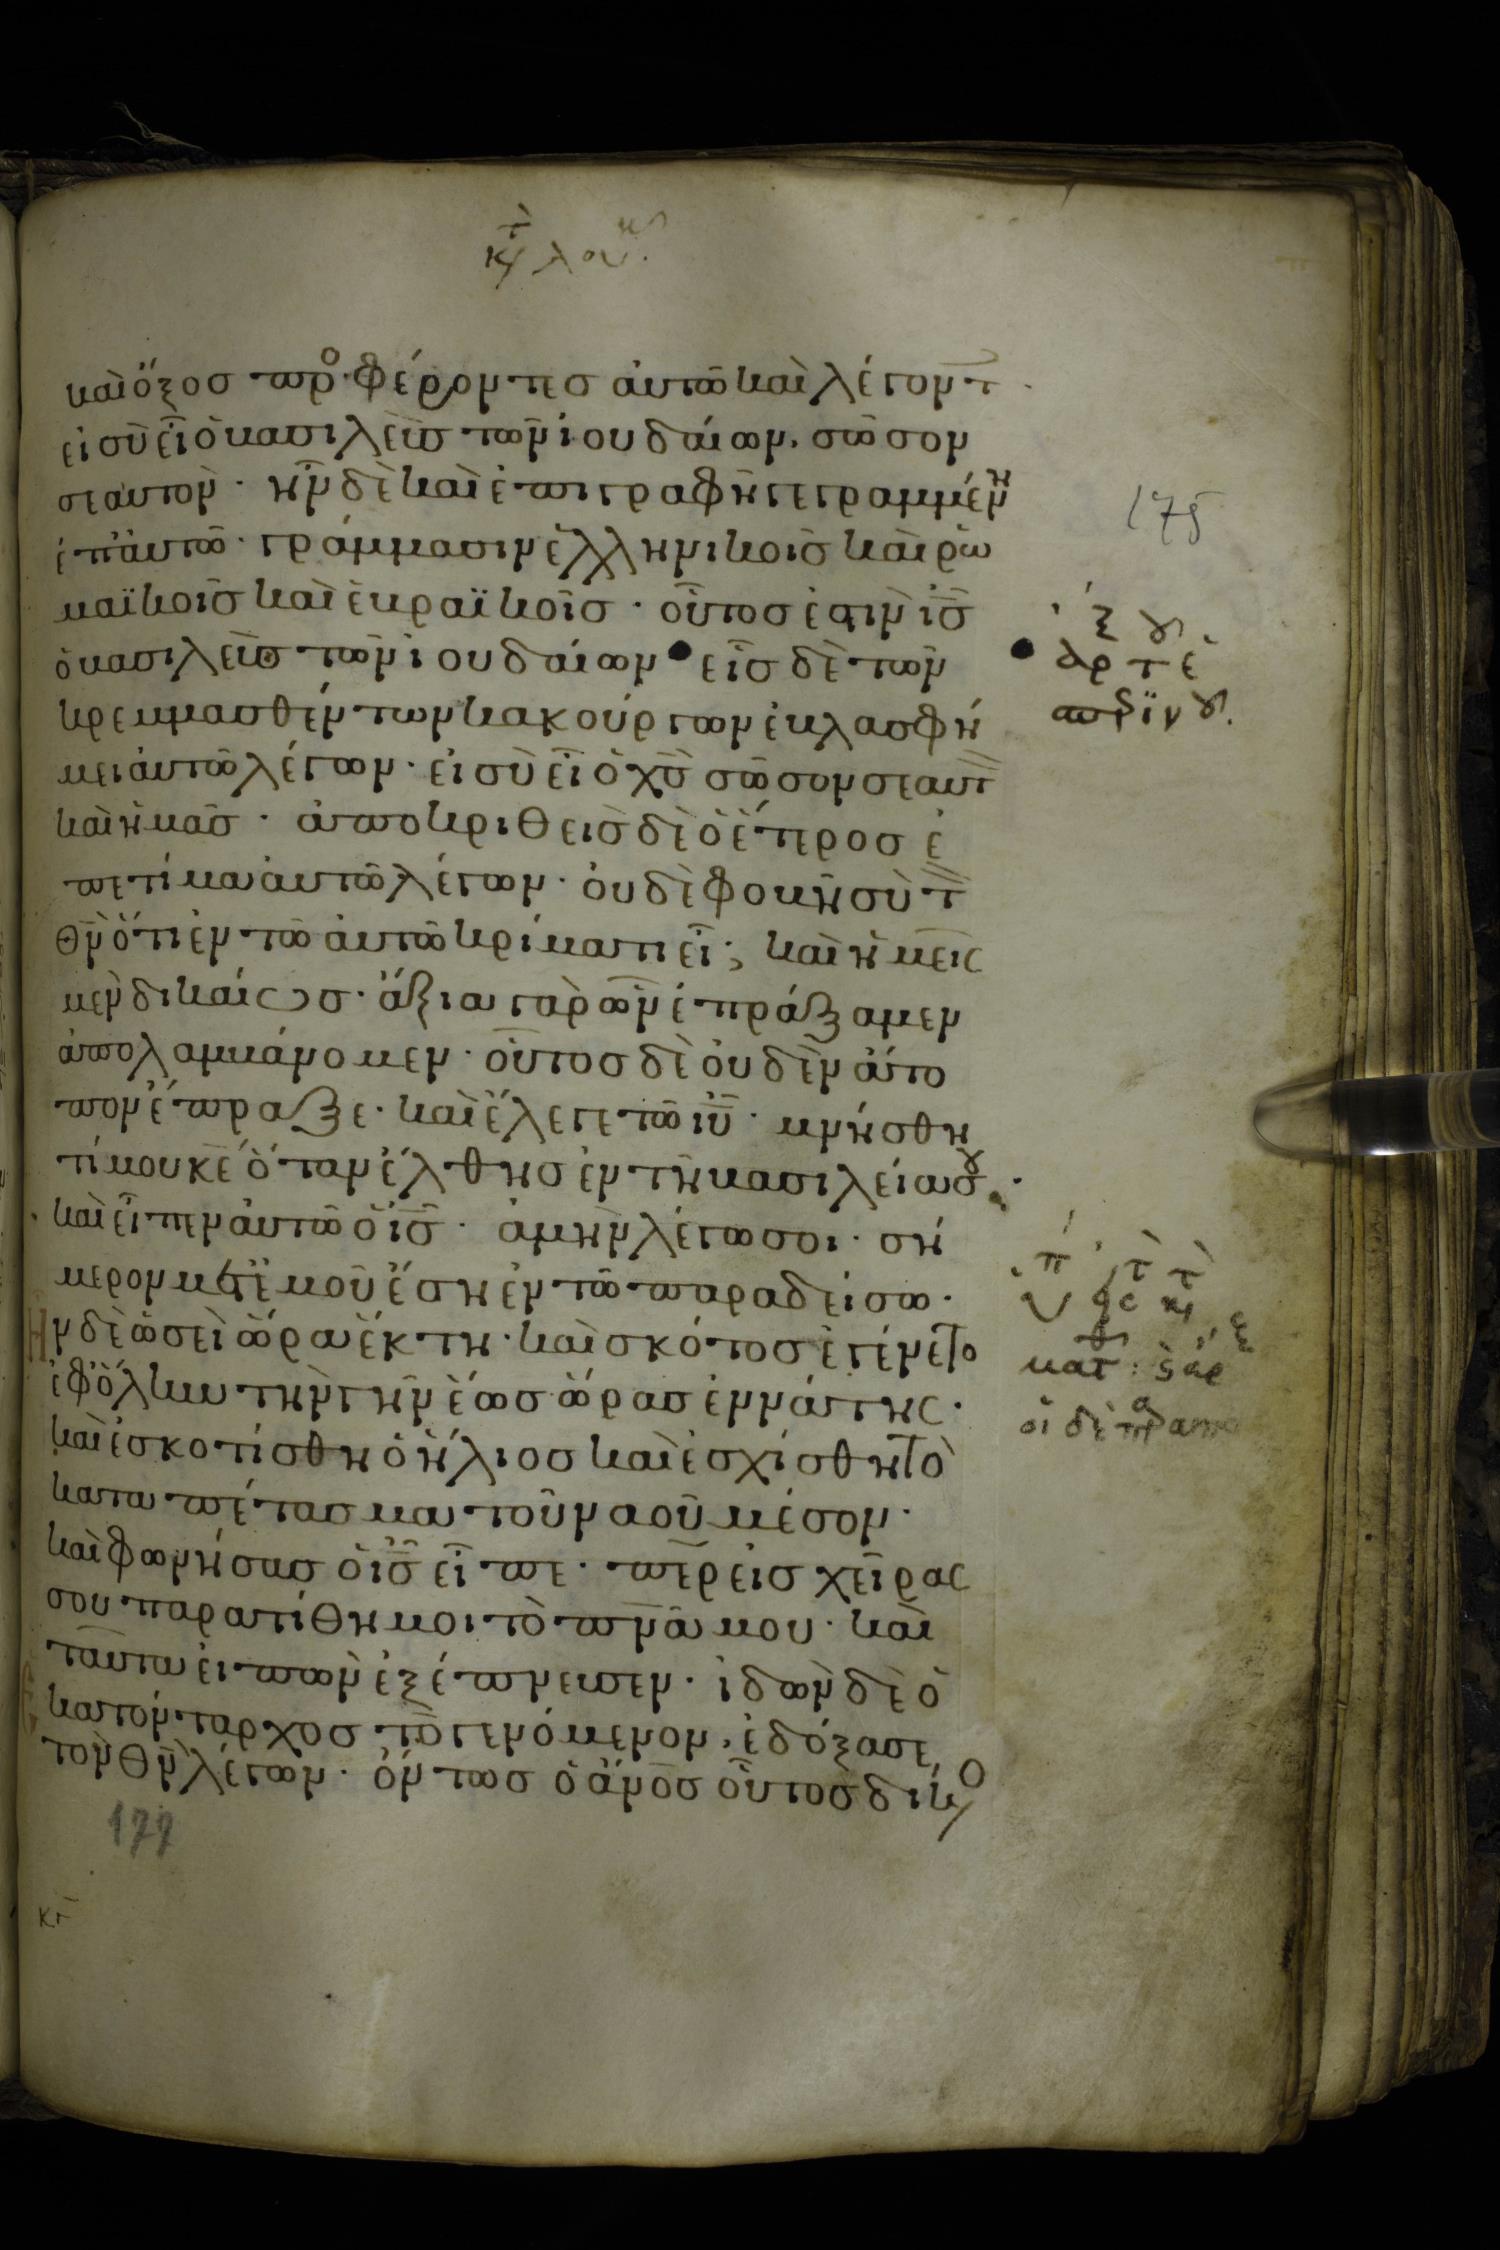 κτ λουκ
καὶ ὄξος προφέροντες αὐτῶ καὶ λέγοντ
εἰ σὺ εἶ ὁ βασιλεὺς τῶν ἰουδαίων. σῶσον
σεαυτὸν · ἦν δὲ καὶ ἐπιγραφὴ γεγραμμένη
ἐπ' αὐτῶ · γράμμασιν ἑλληνικοῖς καὶ ρω
μαϊκοῖς καὶ ἑβραϊκοῖς · οὗτος ἐστιν ις
175
ὁ βασιλεὺς τῶν ἰουδαίων εἷς δὲ τῶν
κρεμμασθέντων κακούργων ἐβλασφή
μει αὐτῶ λέγων · εἰ σὺ εἶ ὁ χς σῶσον σεαυτ
καὶ ἡμᾶς · ἀποκριθεὶς δὲ ὁ ἕτερος ἐ
πετίμα αὐτῶ λέγων · οὐδὲ φοβῆ σὺ τ
θν ὅτι ἐν τῶ αὐτῶ κρίματι εἶ ; καὶ ἡμεῖς
μὲν δικαίως · ἄξια γὰρ ὧν ἐπράξαμεν
ἀπολαμβάνομεν · οὗτος δὲ οὐδὲν ἄτο
πον ἔπραξε · καὶ ἔλεγε τῶ ιυ · μνήσθη
τί μου κε ὅταν ἔλθης ἐν τῆ βασιλεία σου ·
καὶ εἶπεν αὐτῶ ὁ ις · ἀμὴν λέγω σοι · σή
μερον μετ ἐμοῦ ἔση ἐν τῶ παραδείσω ·
Ην δὲ ὡσεὶ ὥρα ἕκτη · καὶ σκότος ἐγένετο
ἐφ' ὅλην τὴν γῆν ἕως ὥρας ἐννάτης ·
καὶ ἐσκοτίσθη ὁ ἥλιος καὶ ἐσχίσθη τὸ
καταπέτασμα τοῦ ναοῦ μέσον ·
καὶ φωνήσας ὁ ις εἶπε · περ εἰς χεῖρας
σου παρατίθημοι τὸ πνα μου · καὶ
ταῦτα εἰπὼν ἐξέπνευσεν · ἰδὼν δὲ ὁ
ἑκατόνταρχος τὸ γενόμενον, ἐδόξασε
τὸν θν λέγων · ὄντως ὁ ανος οὗτος δίκο
177